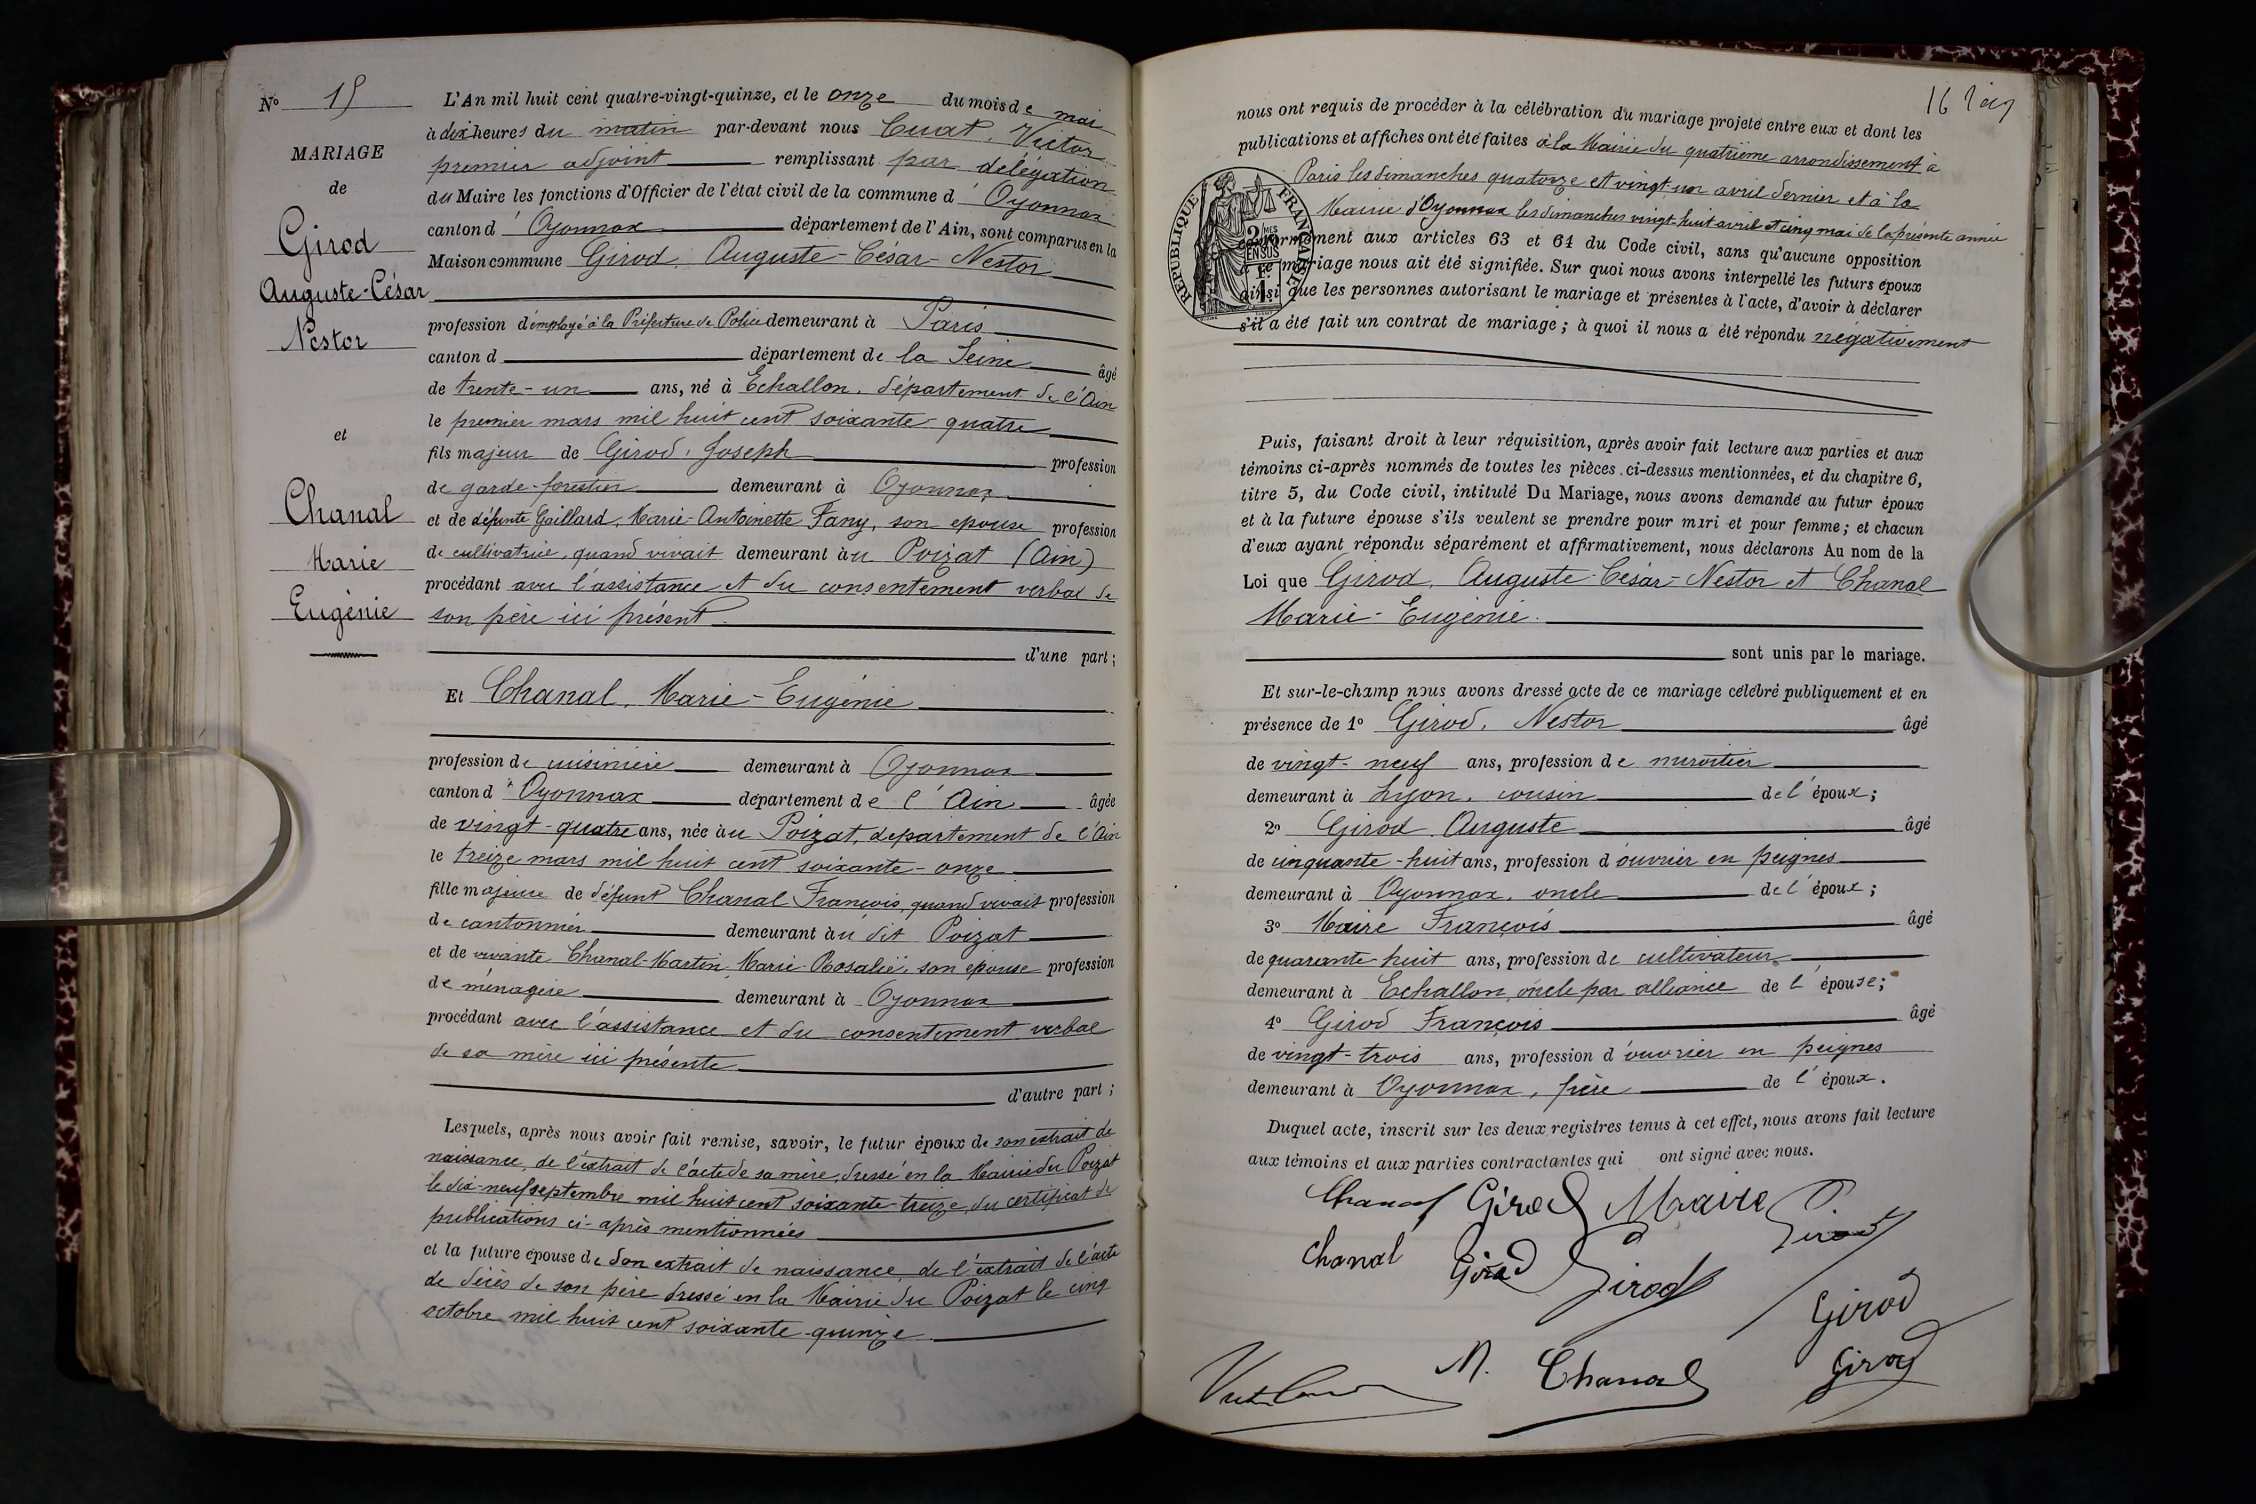 Nº 15
MARIAGE
de
Girod
Auguste-César
Nestor
et
Chanal
Marie
Eugénie
L'An mil huit cent quatre-vingt-quinze, et le onze du mois de mai
à dix heures du matin par-devant nous Cuat, Victor
premier adjoint remplissant par délégation
du Maire les fonctions d'Officier de l'état civil de la commune d'Oyonnax
canton d'Oyonnax département de l'Ain, sont comparus en la
Maison commune Girod, Auguste-César-Nestor
profession d'employé à la Préfecture de Police demeurant à Paris
canton d département de la Seine âgé
de trente-un ans, né à Echallon, département de l'Ain
le premier mars mil huit cent soixante-quatre
fils majeur de Girod, Joseph profession
de garde-forestier demeurant à Oyonnax
et de défunte Gaillard, Marie-Antoinette Fany, son epouse profession
de cultivatrice, quand vivait demeurant au Poizat (Ain)
procédant avec l'assistance et du consentement verbal de
son père ici présent
d'une part;
Et Chanal, Marie-Eugénie
profession de cuisinière demeurant à Oyonnax
canton d'Oyonnax département de l'Ain âgée
de vingt-quatre ans, née au Poizat, département de l'Ain
le treize mars mil huit cent soixante-onze
fille majeure de défunt Chanal François, quand vivait profession
de cantonnier demeurant au dit Poizat
et de vivante Chanal-Martin, Marie-Rosalie, son epouse profession
de ménagère demeurant à Oyonnax
procédant avec l'assistance et du consentement verbal
de sa mère ici présente
d'autre part;
Lesquels, après nous avoir fait remise, savoir, le futur époux de son extrait de
naissance, de l'extrait de l'acte de sa mère, dressé en la Mairie du Poizat
le dix-neuf septembre mil huit cent soixante-treize, du certificat de
publications ci-après mentionnées
et la future épouse de son extrait de naissance, de l'extrait de l'acte
de décès de son père dressé en la Mairie du Poizat le cinq
octobre mil huit cent soixante-quinze
16
nous ont requis de procéder à la célébration du mariage projeté entre eux et dont les
publications et affiches ont été faites à la Mairie du quatrième arrondissement à
Paris les dimanches quatorze et vingt-un avril dernier et à la
Mairie d'Oyonnax les dimanches vingt-huit avril et cinq mai de la présente année
conformément aux articles 63 et 64 du Code civil, sans qu'aucune opposition
à ce mariage nous ait été signifiée. Sur quoi nous avons interpellé les futurs époux
ainsi que les personnes autorisant le mariage et présentes à l'acte, d'avoir à déclarer
s'il a été fait un contrat de mariage; à quoi il nous a été répondu négativement
RÉPUBLIQUE FRANÇAISE
2 MES EN SUS
Puis, faisant droit à leur réquisition, après avoir fait lecture aux parties et aux
témoins ci-après nommés de toutes les pièces ci-dessus mentionnées, et du chapitre 6,
titre 5, du Code civil, intitulé Du Mariage, nous avons demandé au futur époux
et à la future épouse s'ils veulent se prendre pour mari et pour femme; et chacun
d'eux ayant répondu séparément et affirmativement, nous déclarons Au nom de la
Loi que Girod, Auguste-César-Nestor et Chanal
Marie-Eugénie.
sont unis par le mariage.
Et sur-le-champ nous avons dressé acte de ce mariage célébré publiquement et en
présence de 1º Girod, Nestor âgé
de vingt-neuf ans, profession de miroitier
demeurant à Lyon, cousin de l'époux;
2º Girod Auguste âgé
de cinquante-huit ans, profession d'ouvrier en peignes
demeurant à Oyonnax, oncle de l'époux;
3º Maire François âgé
de quarante-huit ans, profession de cultivateur
demeurant à Echallon, oncle par alliance de l'épouse;
4º Girod François âgé
de vingt-trois ans, profession d'ouvrier en peignes
demeurant à Oyonnax, frère de l'époux.
Duquel acte, inscrit sur les deux registres tenus à cet effet, nous avons fait lecture
aux témoins et aux parties contractantes qui ont signé avec nous.
Chanal Girod Maire Girod
Chanal Girod Girod
Girod
M. Chanal Girod